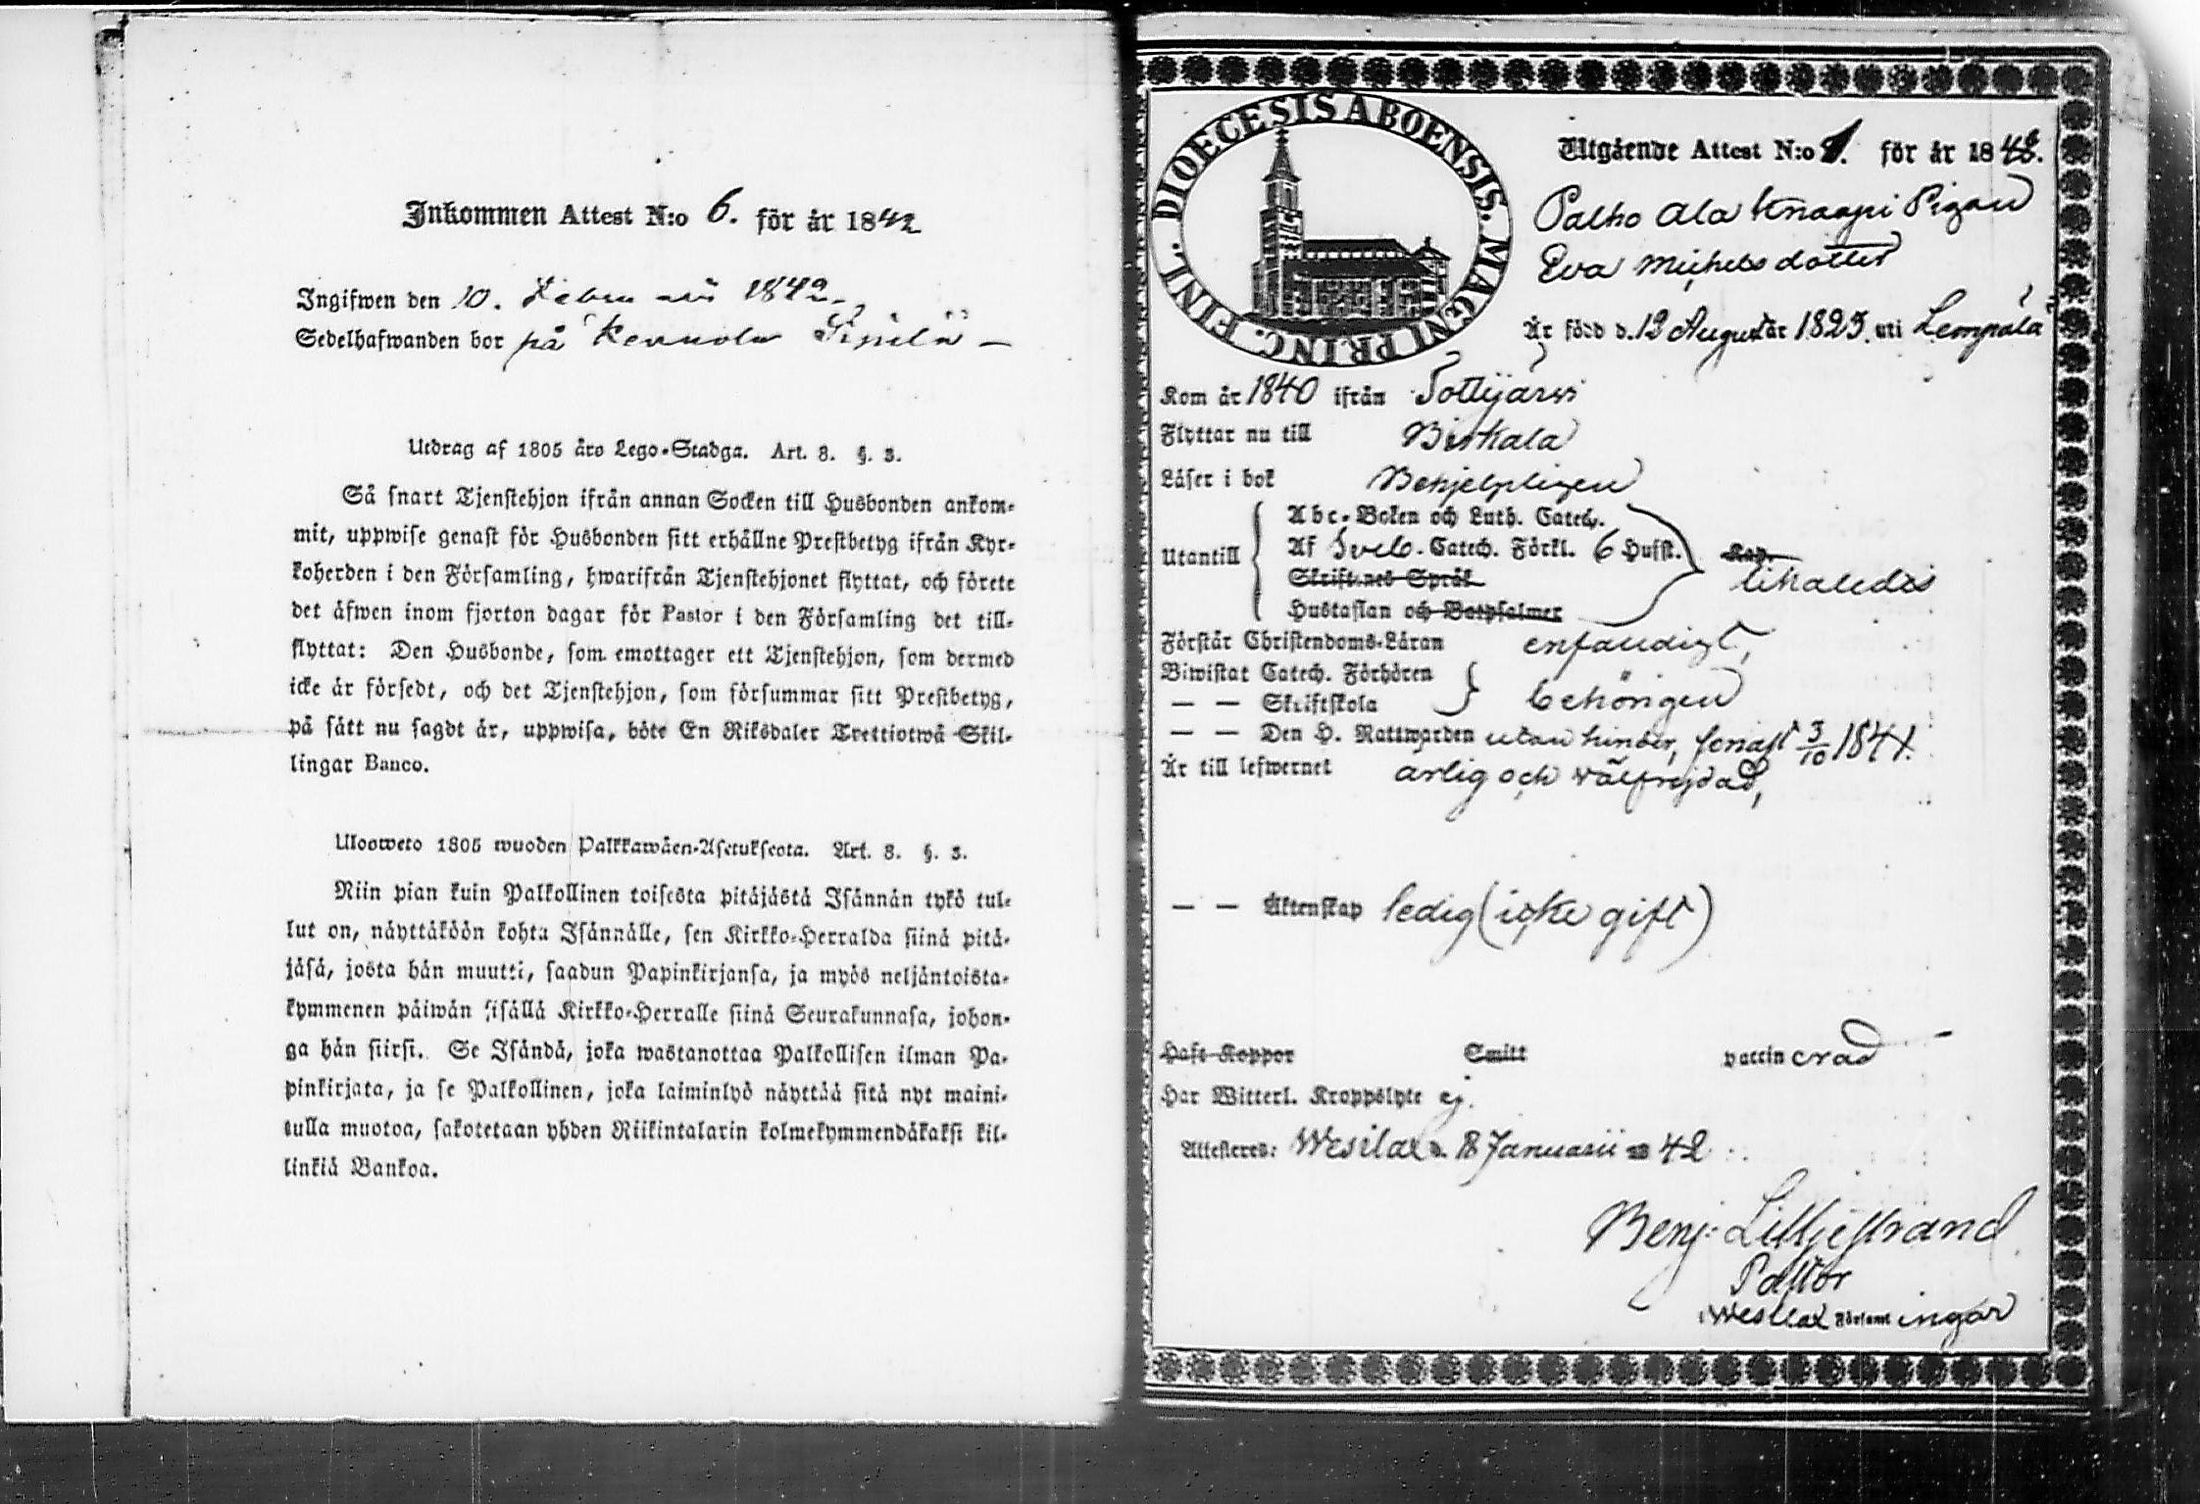 Inkommen Attest N:o 6. för år 1842
Ingifwen den 10. Februarii 1842.
Sedelhafwanden bor på Sipilä –
Utdrag af 1805 års Lego-Stadga. Art. 8. §. 3.
Så snart Tjenstehjon ifrån annan Socken till Husbonden ankom-
mit, uppwise genast för Husbonden sitt erhållne Prestbetyg ifrån Kyr-
koherden i den Församling, hwarifrån Tjenstehjonet flyttat, och förete
det äfwen inom fjorton dagar för Pastor i den Församling det till-
flyttat: Den Husbonde, som emottager ett Tjenstehjon, som dermed
icke är försedt, och det Tjenstehjon, som försummar sitt Prestbetyg,
på sätt nu sagdt är, uppwisa, böte En Riksdaler Trettiotwå Skil-
lingar Banco.
Ulosweto 1805 wuoden Palkkawäen-Asetuksesta. Art. 8. §. 3.
Niin pian kuin Palkollinen toisesta pitäjästä Isännän tykö tul-
lut on, näyttäköön kohta Isännälle, sen Kirkko-Herralda siinä pitä-
jäsä, josta hän muutti, saadun Papinkirjansa, ja myös neljäntoista-
kymmenen päiwän sisällä Kirkko-Herralle siinä Seurakunnasa, johon-
ga hän siirsi. Se Isändä, joka wastanottaa Palkollisen ilman Pa-
pinkirjata, ja se Palkollinen, joka laiminlyö näyttää sitä nyt maini-
tulla muotoa, sakotetaan yhden Riikintalarin kolmekymmendäkaksi kil-
linkiä Bankoa.
DIOECESIS ABOENSIS. MAGNI PRINC. FINL.
Utgående Attest N:o 1. för år 1842.
Palho Ala Knaapi Pigan
Eva Michelsdotter
Är född d. 12 August år 1825. uti Lempälä
Kom år 1840 ifrån Tottijärvi
Flyttar nu till Birkala
Läser i bok Behjelpligen
Utantill
Abc-Boken och Luth. Catech.
Af Svebs. Catech. Förkl. 6 Hufst. Kap.
likaledes
Skriftenes Språk
Hustaflan och Botpsalmer
Förstår Christendoms-Läran enfaldigt,
Biwistat Catech. Förhören
— — Skriftskola behörigen
— — Den H. Nattwarden utan hinder, senast 3/10 1841.
Är till lefwernet ärlig och välfrejdad,
— — Äktenskap ledig (icke gift)
Haft Koppor Smitt vaccinerad
Har Witterl. Kroppslyte ej.
Attesteres: Wesilax d. 18 Januarii 18 42
Benj. Lilljestrand
Pastor
i Wesilax Församlingar